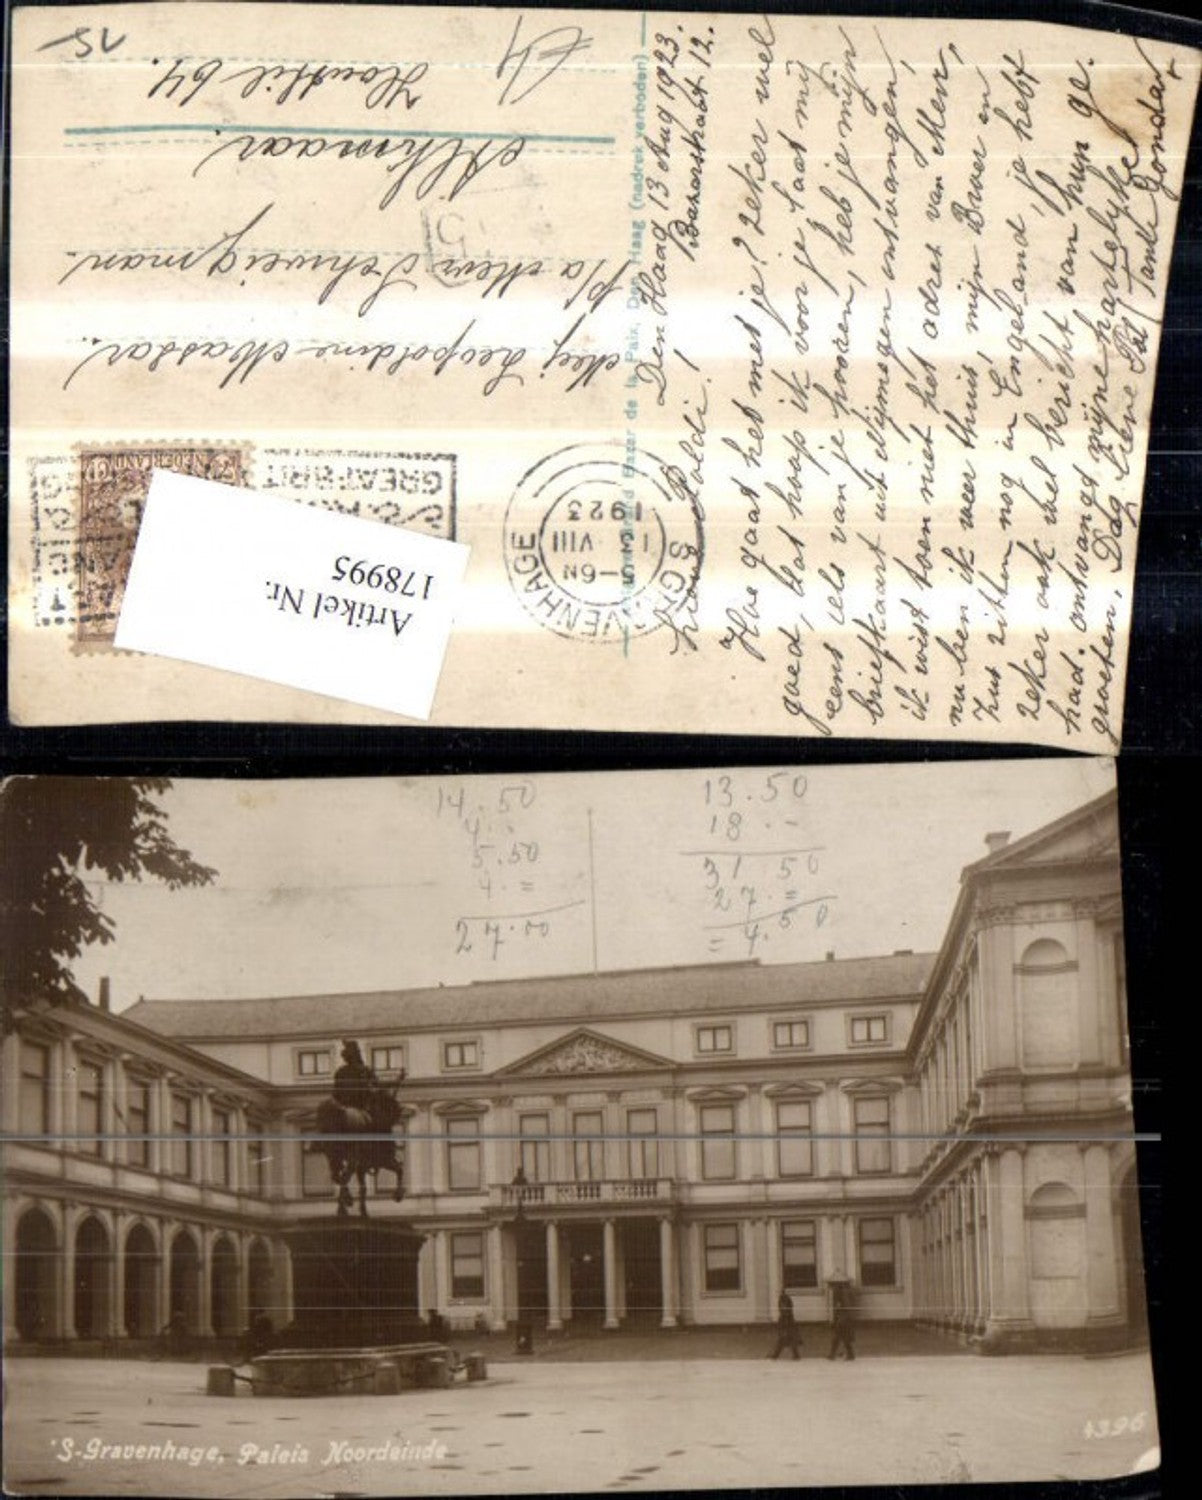 Den Haag 13 Aug 1923.
Bazarstraat 12.
Lieve Poldi!
Hoe gaat het met je? zeker wel
goed, dat hoop ik voor je. Laat mij
eens iets van je hooren, heb je mijn
briefkaart uit Nijmegen ontvangen,
ik wist toen niet het adres van Mevr,
nu ben ik weer thuis, mijn Broer en
Zus zitten nog in Engeland, je hebt
zeker ook wel bericht van hun ge-
had. ontvangt mijne hartelijke
groeten. Dag Lieve Pol Tante
de la Paix, Den Haag (nadruk verboden)
'S GRAVENHAGE
5-6N
13 VIII
1923
NEDERLAND
GREAT BRIT
Mej Leopoldine Massar.
p/a Mevr Schweigman.
Alkmaar.
64.
15
Artikel Nr.
178995
14.50
4.-
5.50
4.=
27.00
13.50
18.-
31 50
27.=
= 4.50
'S-Gravenhage, Paleis Noordeinde
4396